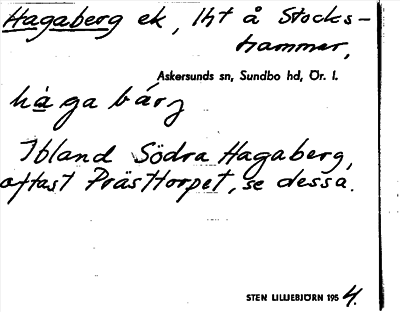 Hagaberg ek, 1ht å Stocks-
hammar,
Askersunds sn, Sundbo hd, Ör. l.
hàga bárj
Ibland Södra Hagaberg,
oftast Prästtorpet, se dessa.
STEN LILLIEBJÖRN 1954.